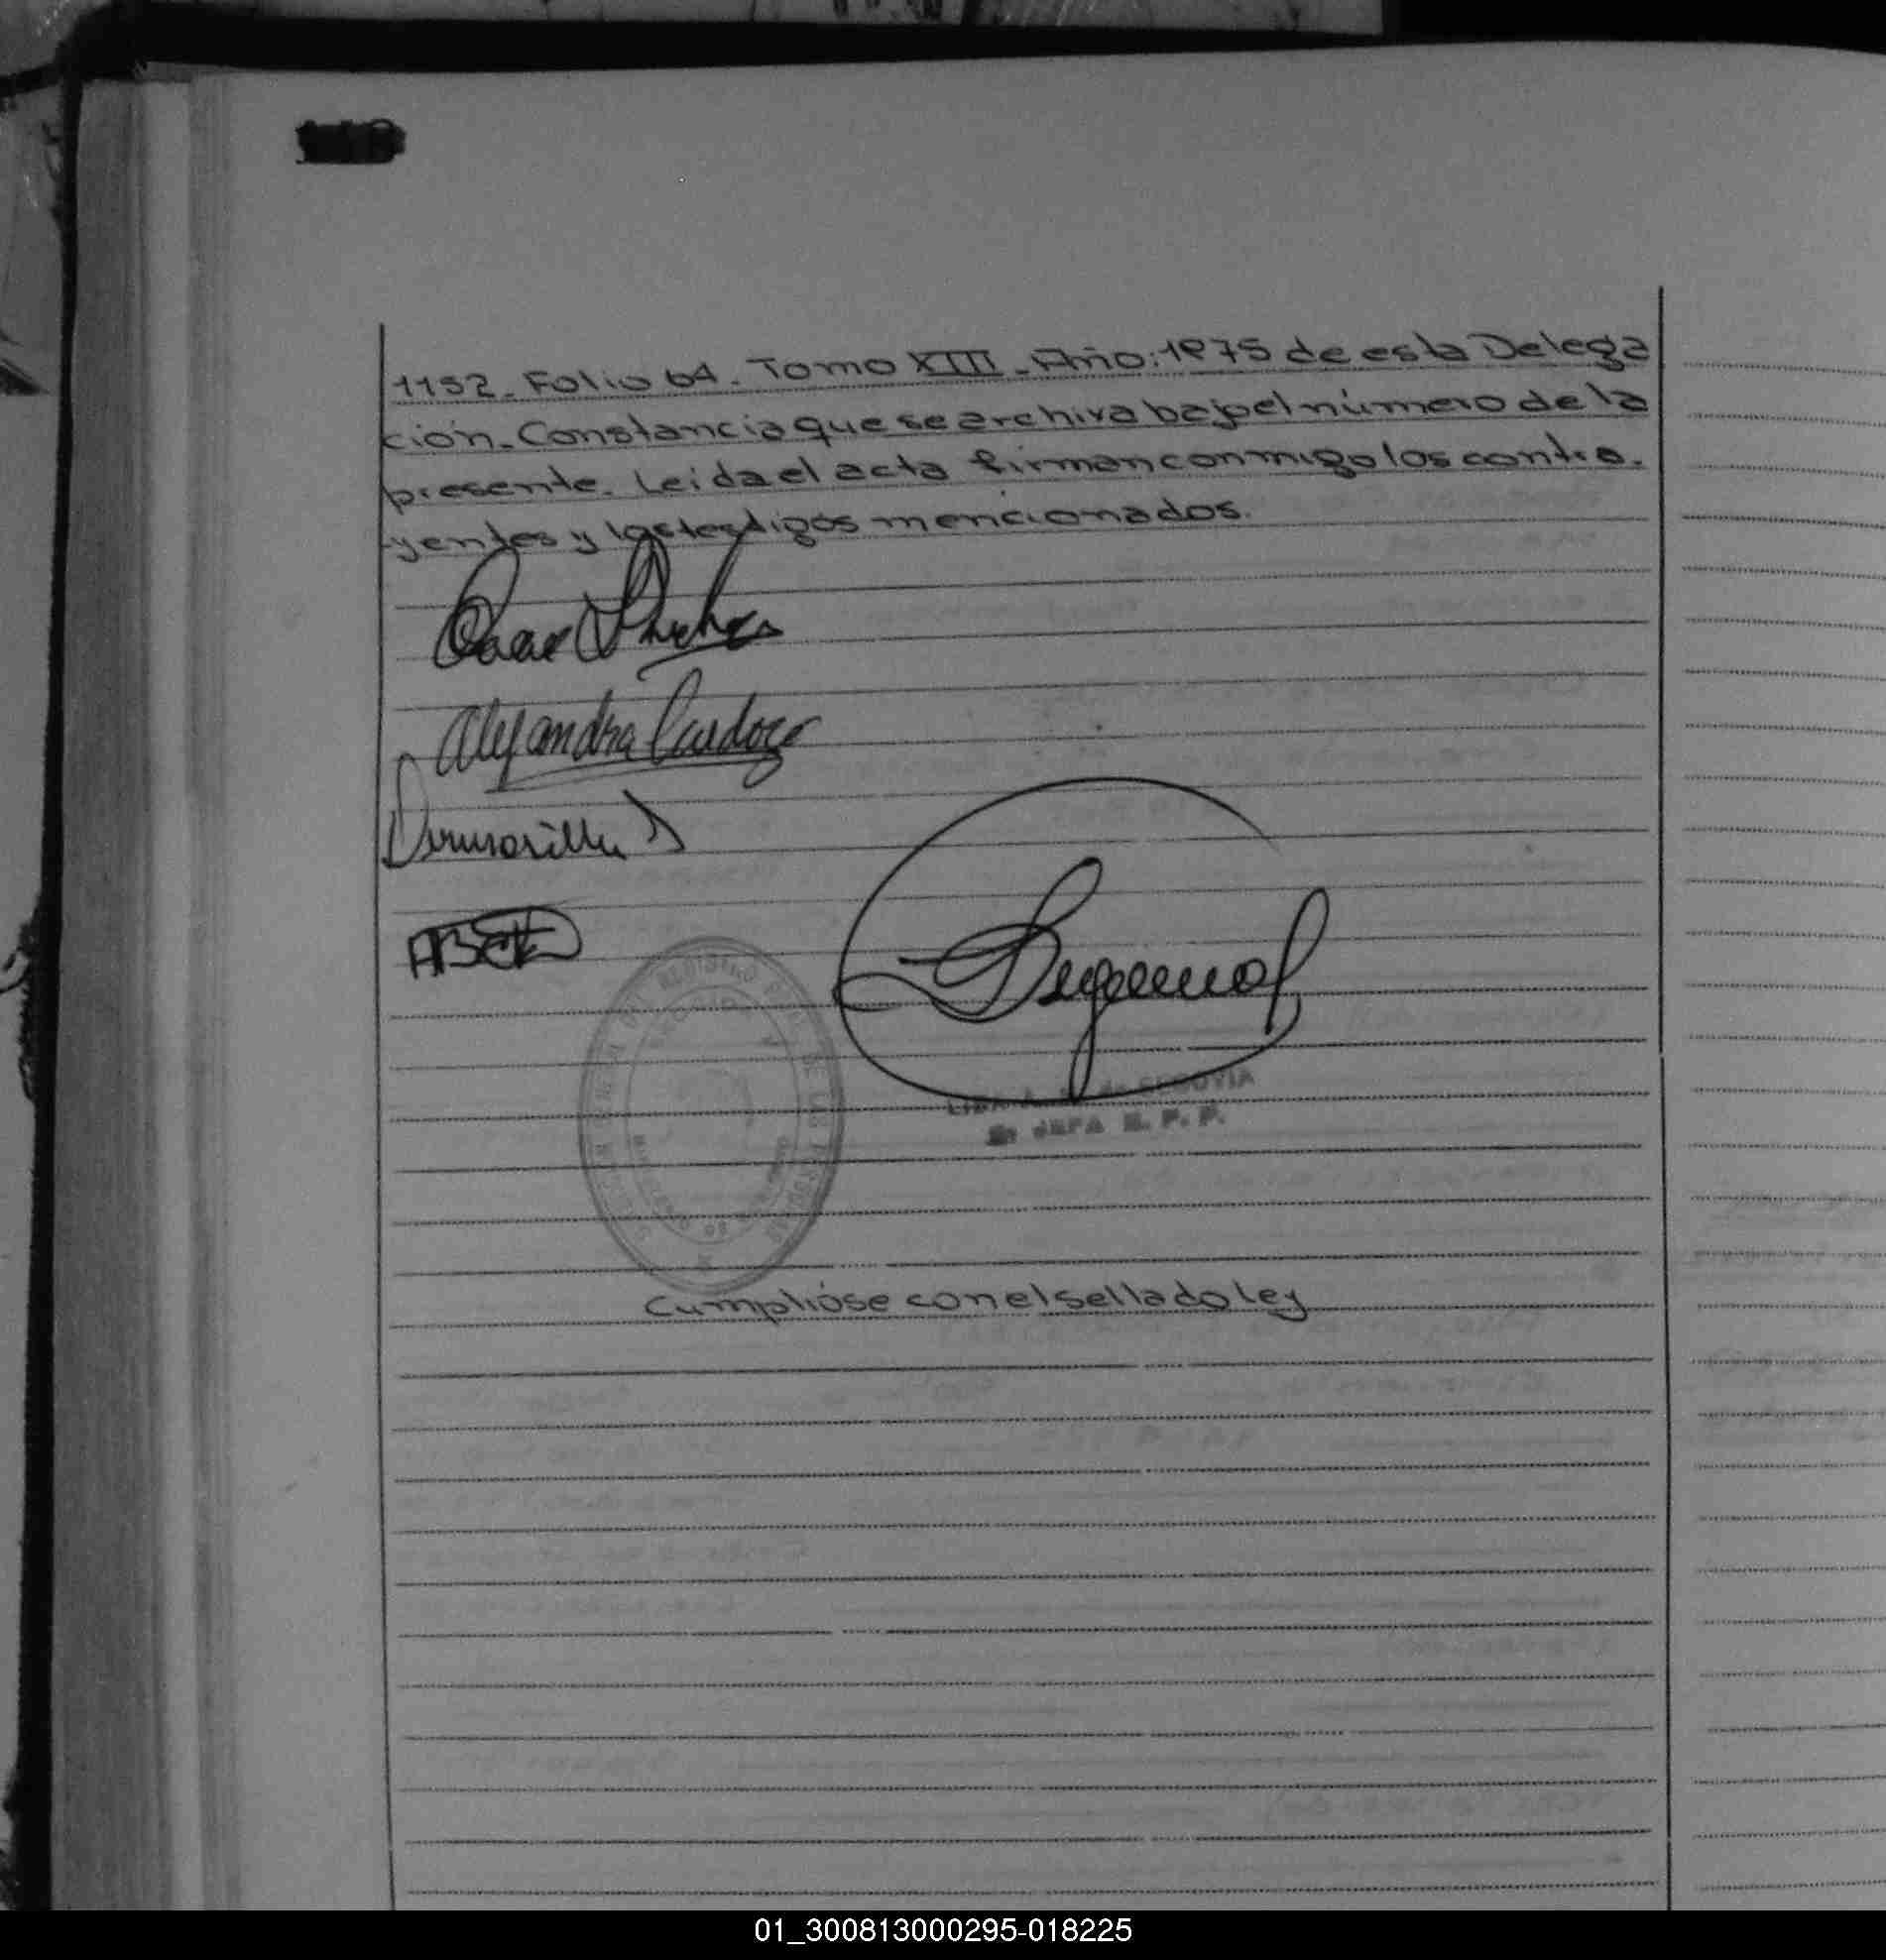 118
1152. Folio 64. Tomo XIII. Año: 1975 de esta Delega
ción. Constancia que se archiva bajo el número de la
presente. Leida el acta firman conmigo los contra.
yentes y los testigos mencionados.
Alejandra Cardozo
REGISTRO DE LAS PERSONAS
de SEGOVIA
JEFA R. P. P.
Cumplióse con el sellado ley
01_300813000295-018225